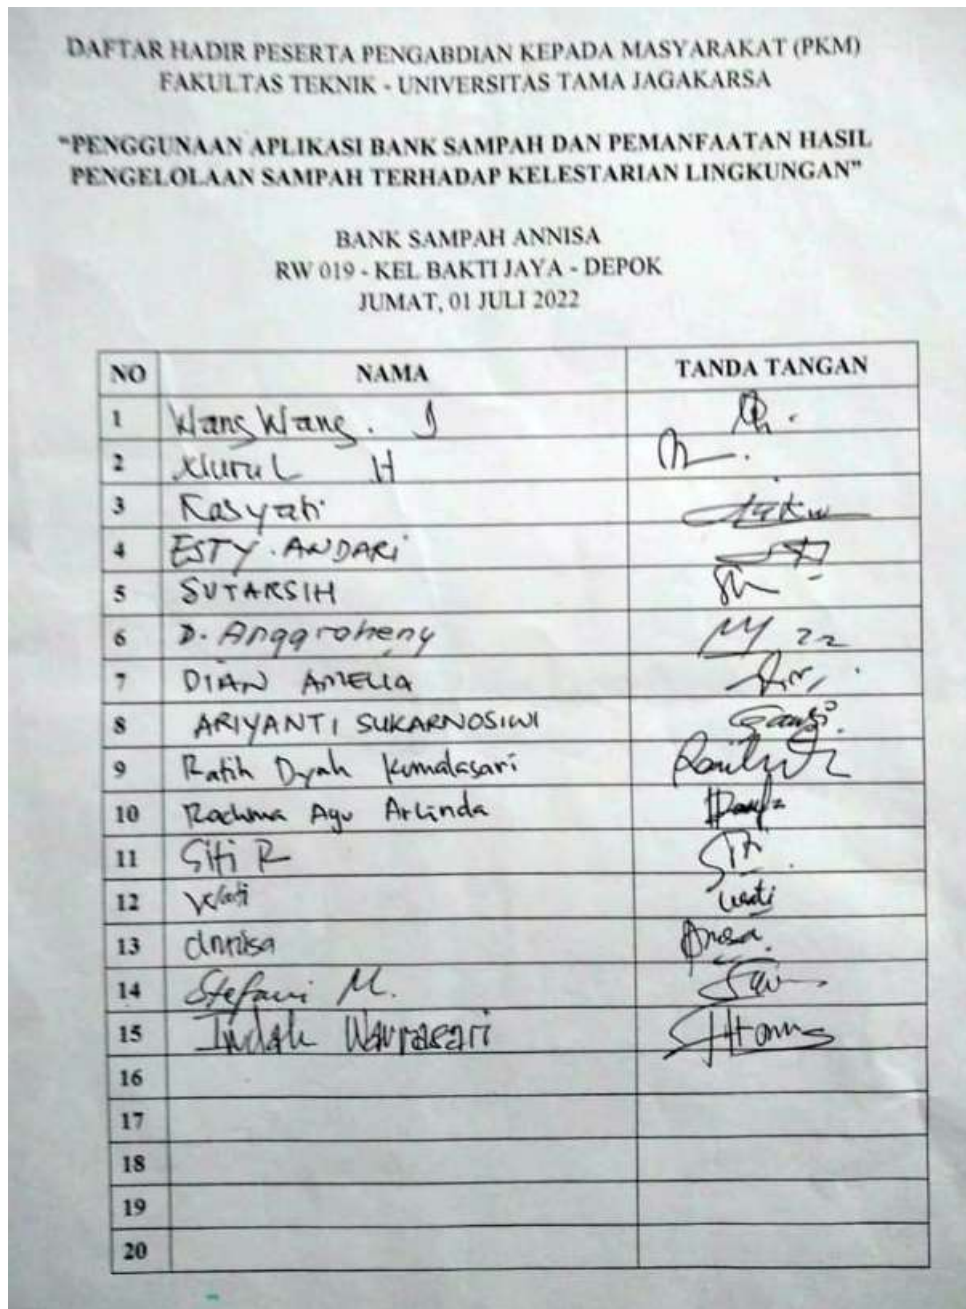 DAFTAR HADIR PESERTA PENGABDIAN KEPADA MASYARAKAT (PKM)
FAKULTAS TEKNIK - UNIVERSITAS TAMA JAGAKARSA
"PENGGUNAAN APLIKASI BANK SAMPAH DAN PEMANFAATAN HASIL
PENGELOLAAN SAMPAH TERHADAP KELESTARIAN LINGKUNGAN"
BANK SAMPAH ANNISA
RW 019 - KEL BAKTI JAYA - DEPOK
JUMAT, 01 JULI 2022
NO NAMA TANDA TANGAN
1 Wang Wang. J
2 Nurul H
3 Kasyati
4 ESTY. ANDARI
5 SUTARSIH
6 D. Anggraheny 22
7 DIAN AMELIA
8 ARIYANTI SUKARNOSIWI
9 Ratih Dyah Kumalasari
10 Rachma Ayu Arlinda
11 Siti R
12 Wati Wati
13 Annisa
14 Stefani M.
15 Indah
16
17
18
19
20